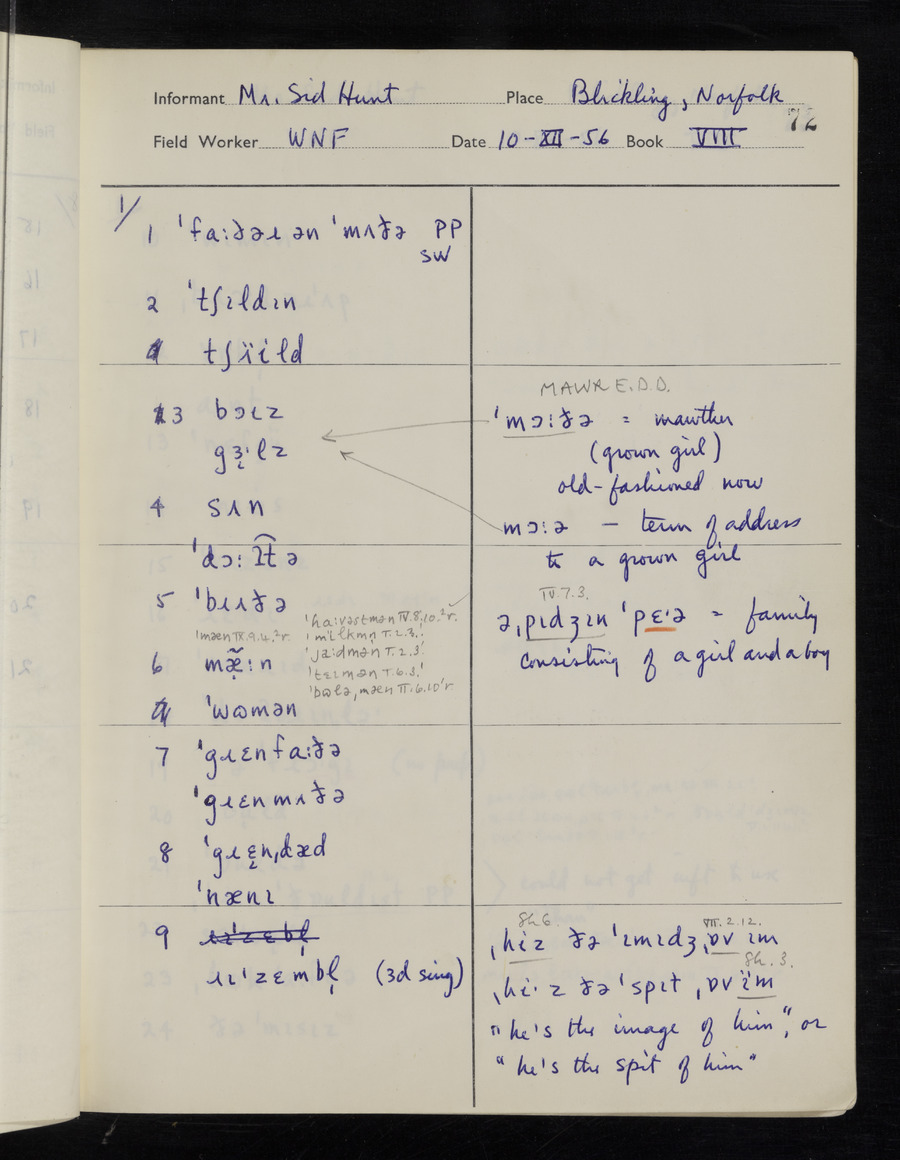 Informant Mr. Sid Hunt Place Blickling, Norfolk
72
Field Worker WNF Date 10-XII-56 Book VIII
1/
1 ˈfaːðəɹ ən ˈmʌðə PP
SW
2 ˈtʃɪldɪn
tʃïˑld
3 bɔɪz
gɜ̣ˑlz
4 sʌn
ˈdɔːʔ͡tə
5 ˈbɹʌðə
ˈmæn IX.9.4.²r.
6 mæ̣̃ːn
ˈhaːvəstmən IV.8.10.²r.
ˈmɪlkmn̩ T.2.3.ˡ
ˈjaːdmən T.2.3.ˡ
ˈtɛɪmən T.6.3.ˡ
ˈbʊlə,mæn II.6.10ˡr.
ˈwʊmən
7 ˈgɹɛnfaːðə
ˈgɹɛnmʌðə
8 ˈgɹɛ̣nˌdæd
ˈnænɪ
9 ɹɪˈzɛbl̩
ɹɪˈzɛmbl̩ (3d sing)
MAWR E.D.D.
ˈmɔːðə = mawther
(grown girl)
old-fashioned now
mɔːə — term of address
to a grown girl
IV.7.3.
əˌpɪdʒɪn ˈpɛˑə = family
consisting of a girl and a boy
Sh 6. VII.2.12.
ˌhiz ðə ˈɪmɪdʒˌɒv ɪm
Sh. 3.
ˌhiˑz ðə ˈspɪt ˌɒv ïm
"he's the image of him", or
"he's the spit of him"